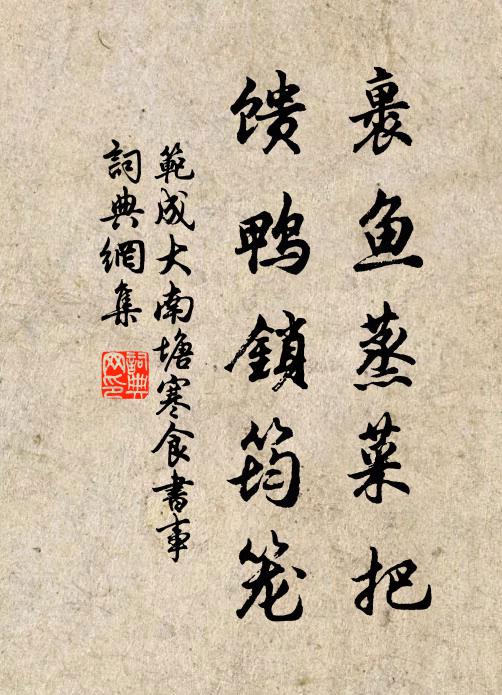 裹鱼蒸菜把
馈鸭鎖筠笼
範成大南塘寒食書事
詞典網集
詞典網印